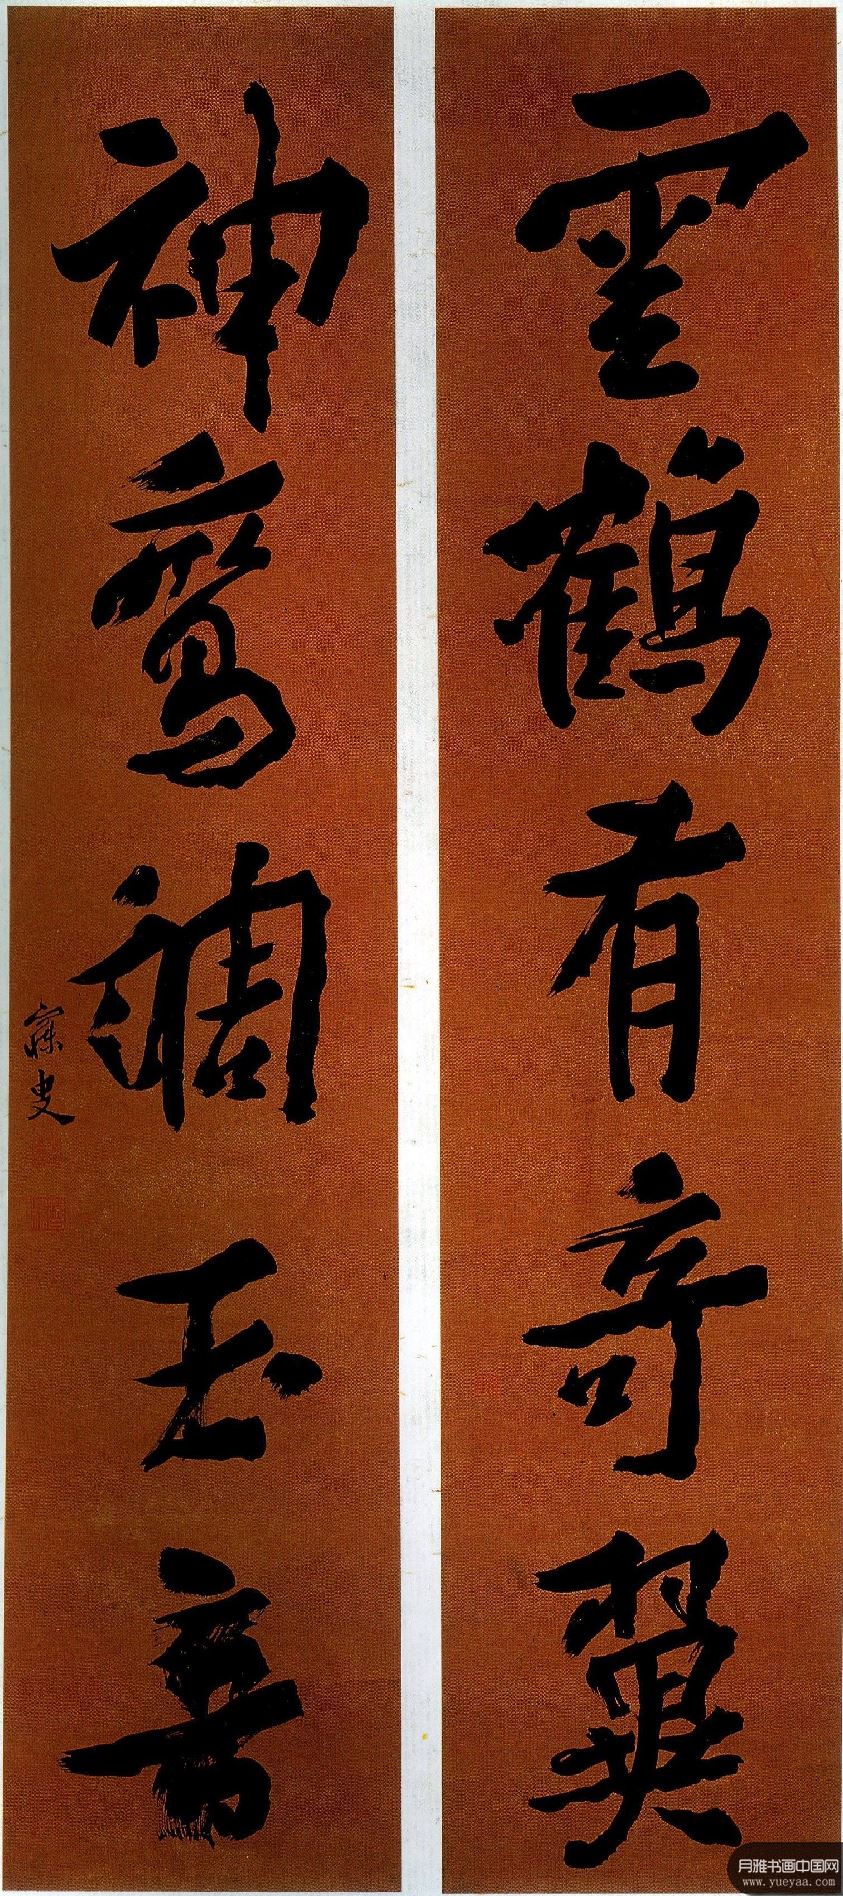 雲鶴有奇翼
神鸞調玉音
寐叟
月雅书画中国网
www.yueyaa.com